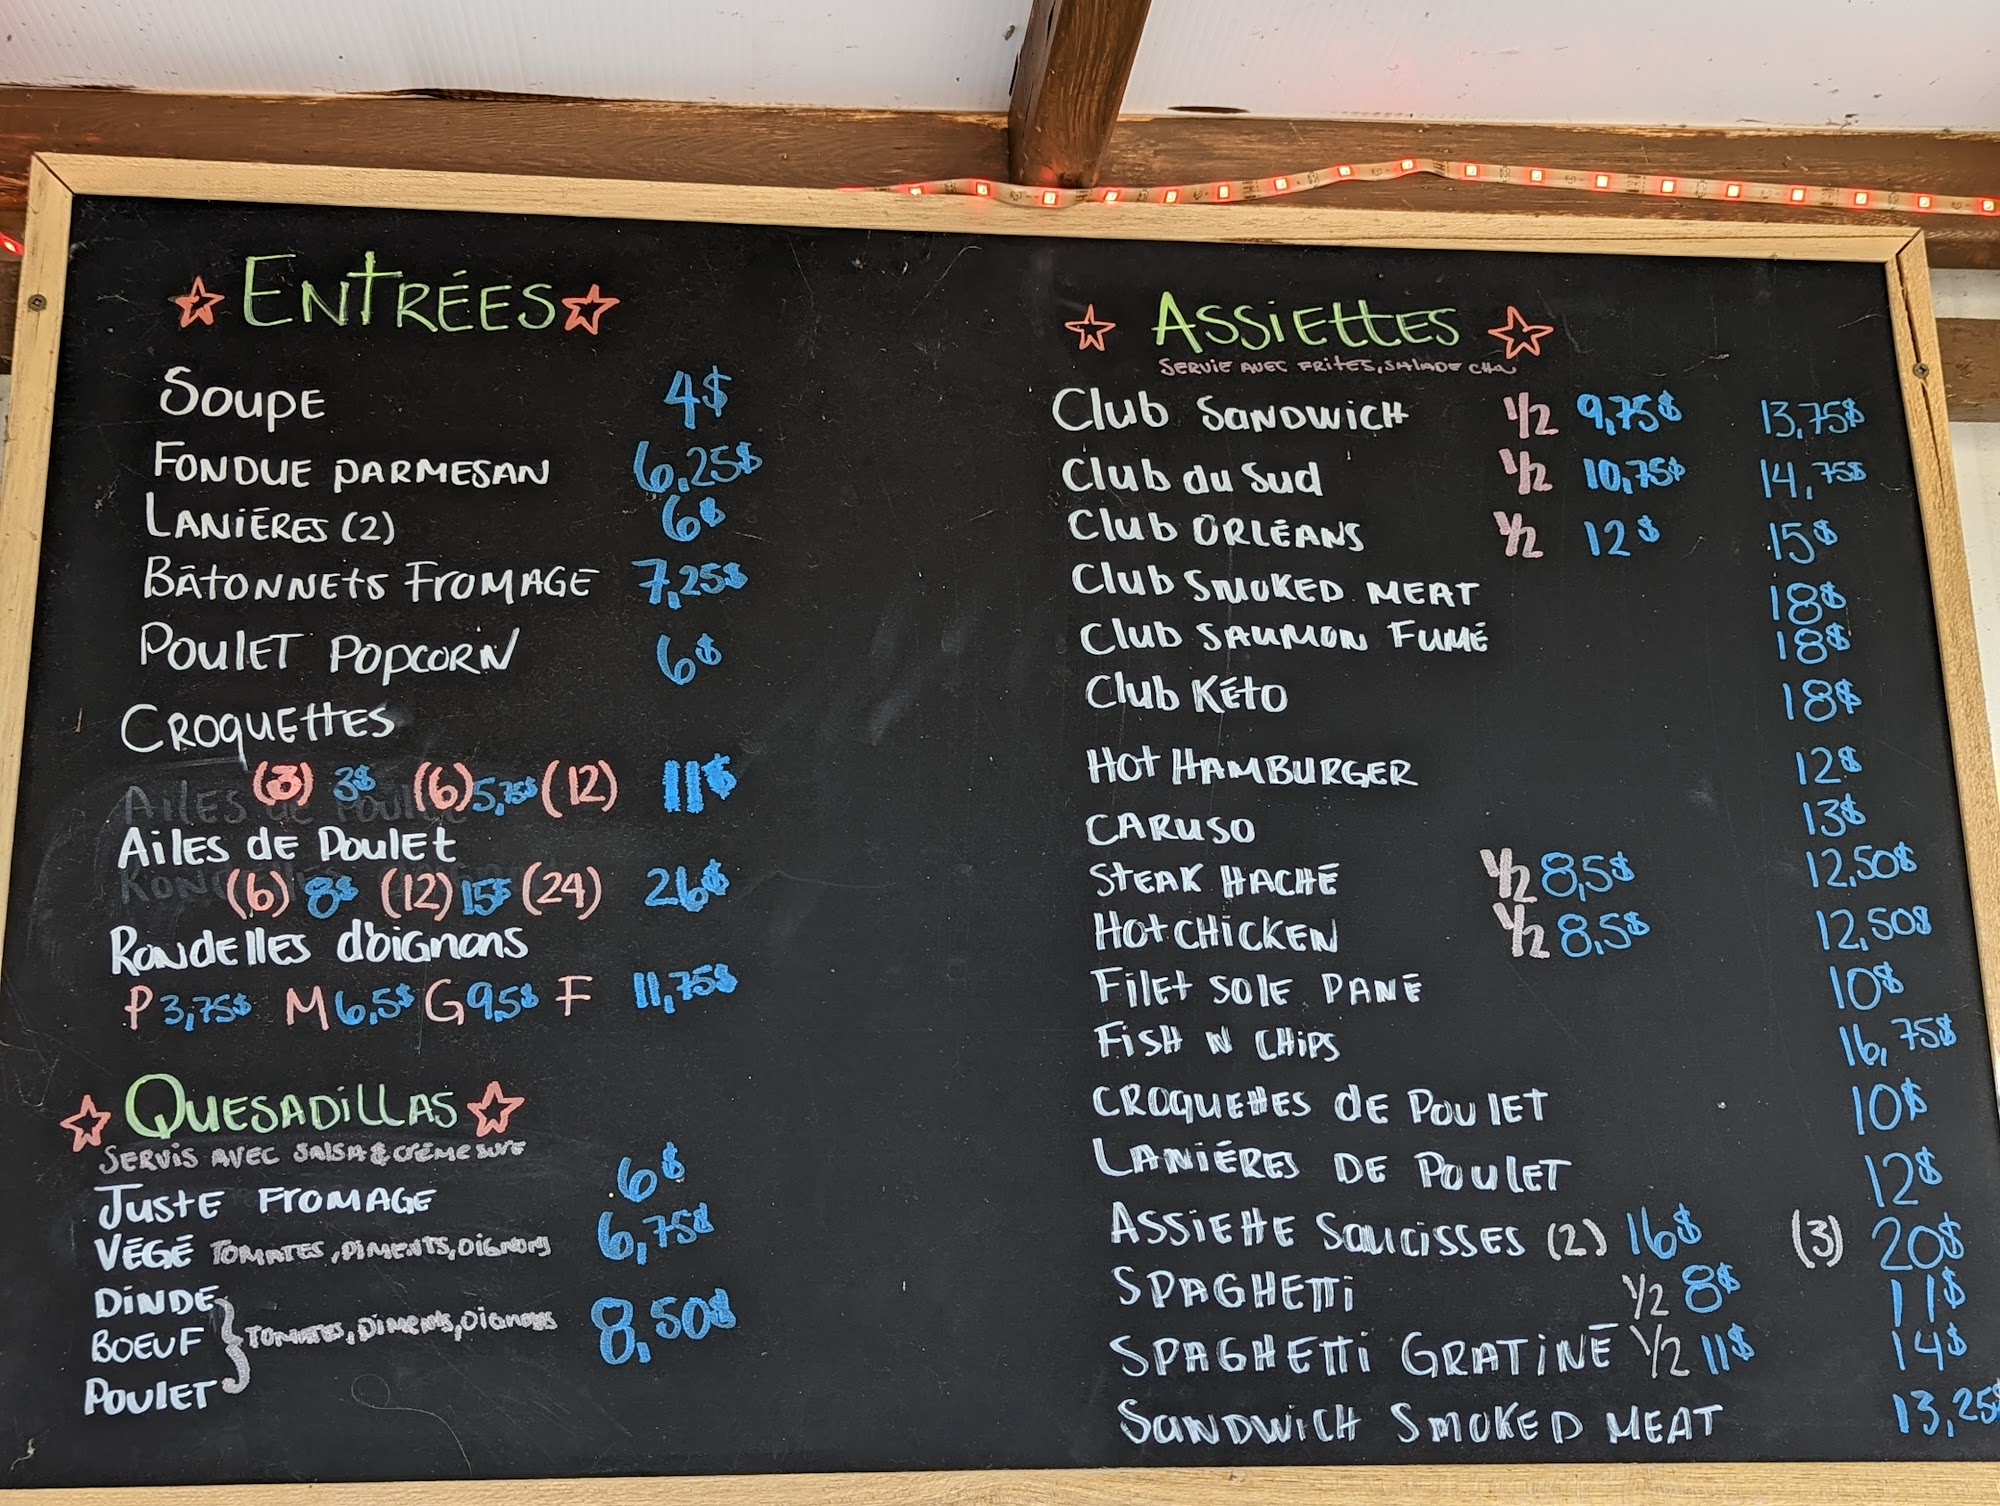 ENTRÉES
SOUPE 4$
FONDUE PARMESAN 6,25$
LANIÈRES (2) 6$
BÂTONNETS FROMAGE 7,25$
POULET POPCORN 6$
CROQUETTES
(3) 3$ (6) 5,75$ (12) 11$
AILES DE POULET
(6) 8$ (12) 15$ (24) 26$
RONDELLES D'OIGNONS
P 3,75$ M 6,5$ G 9,5$ F 11,75$
QUESADILLAS
SERVIS AVEC SALSA & CRÈME SURE
JUSTE FROMAGE 6$
VÉGÉ TOMATES, PIMENTS, OIGNONS 6,75$
DINDE
BOEUF TOMATES, PIMENTS, OIGNONS 8,50$
POULET
ASSIETTES
SERVIE AVEC FRITES, SALADE
Club SANDWICH 1/2 9,75$ 13,75$
Club du Sud 1/2 10,75$ 14,75$
Club ORLÉANS 1/2 12$ 15$
Club SMOKED MEAT 18$
Club SAUMON FUMÉ 18$
Club KÉTO 18$
HOT HAMBURGER 12$
CARUSO 13$
STEAK HACHÉ 1/2 8,5$ 12,50$
HOT CHICKEN 1/2 8,5$ 12,50$
FILET SOLE PANÉ 10$
FISH N CHIPS 16,75$
CROQUETTES DE POULET 10$
LANIÈRES DE POULET 12$
ASSIETTE SAUCISSES (2) 16$ (3) 20$
SPAGHETTI 1/2 8$ 11$
SPAGHETTI GRATINÉ 1/2 11$ 14$
SANDWICH SMOKED MEAT 13,25$